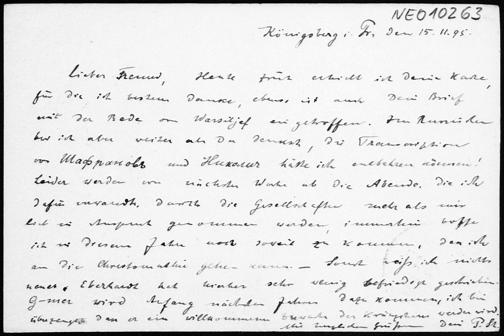 NEO10263
Königsberg i. Pr. den 15.11.95.
Lieber Freund, Heute früh erhielt ich Deine Karte,
für die ich bestens danke, ebenso ist auch Dein Brief
mit der Rede von eingetroffen. Im Russischen
bin ich aber weiter als Du denkst, die Transcription
von Шафрановъ und Николич hätte ich entbehren können!
Leider werden von nächster Woche ab die Abende, die ich
dafür verwandte, durch die Gesellschaften mehr als mir
lieb in Anspruch genommen werden, immerhin hoffe
ich in diesem Jahre noch soweit zu kommen, dass ich
an die Chrestomathie gehen kann. – Sonst weiss ich nichts
neues, Eberhardt hat wieder sehr wenig befriedigt geschrieben.
wird Anfang nächsten Jahres dazu kommen, ich bin
überzeugt dass er ein willkommener der Königsberger werden wird
Mit herzlichen Grüssen Dein